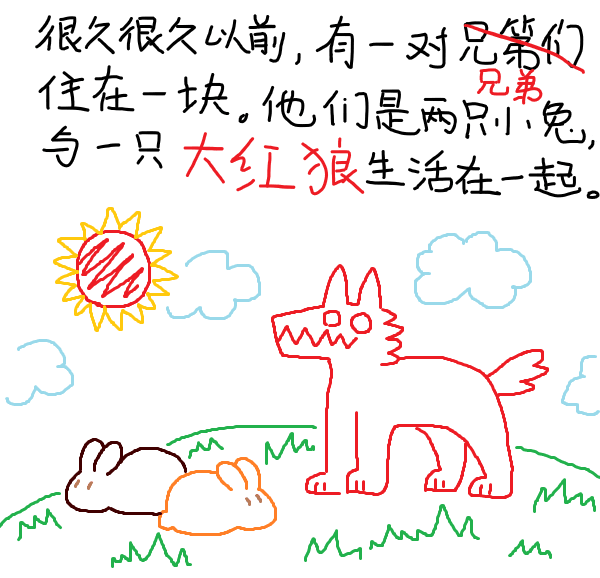 很久很久以前,有一对兄第们
兄弟
住在一块。他们是两只小兔,
与一只大红狼生活在一起。